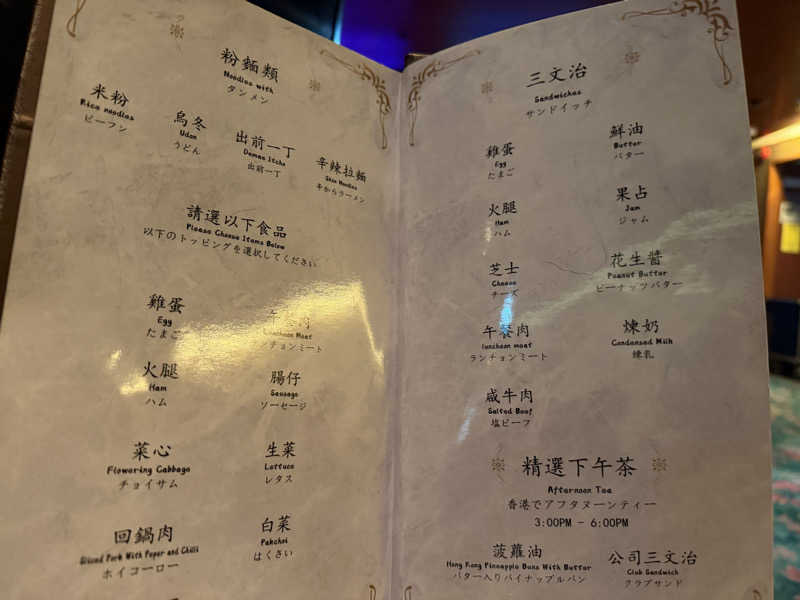 粉麵類
Noodles with
タンメン
米粉
Rice noodles
ビーフン
烏冬
Udon
うどん
出前一丁
Demae Itcho
出前一丁
辛辣拉麵
Shin Noodles
辛からラーメン
請選以下食品
Please Choose Items Below
以下のトッピングを選択してください
雞蛋
Egg
たまご
午餐肉
Luncheon Meat
ランチョンミート
火腿
Ham
ハム
腸仔
Sausage
ソーセージ
菜心
Flowering Cabbage
チョイサム
生菜
Lettuce
レタス
回鍋肉
Sliced Pork With Peper and Chilli
ホイコーロー
白菜
Pakchoi
はくさい
三文治
Sandwiches
サンドイッチ
雞蛋
Egg
たまご
鮮油
Butter
バター
火腿
Ham
ハム
果占
Jam
ジャム
芝士
Cheese
チーズ
花生醬
Peanut Butter
ピーナッツバター
午餐肉
luncheon meat
ランチョンミート
煉奶
Condensed Milk
練乳
咸牛肉
Salted Beef
塩ビーフ
精選下午茶
Afternoon Tea
香港でアフタヌーンティー
3:00PM - 6:00PM
菠蘿油
Hong Kong Pinnapple Buns With Butter
バター入りパイナップルパン
公司三文治
Club Sandwich
クラブサンド